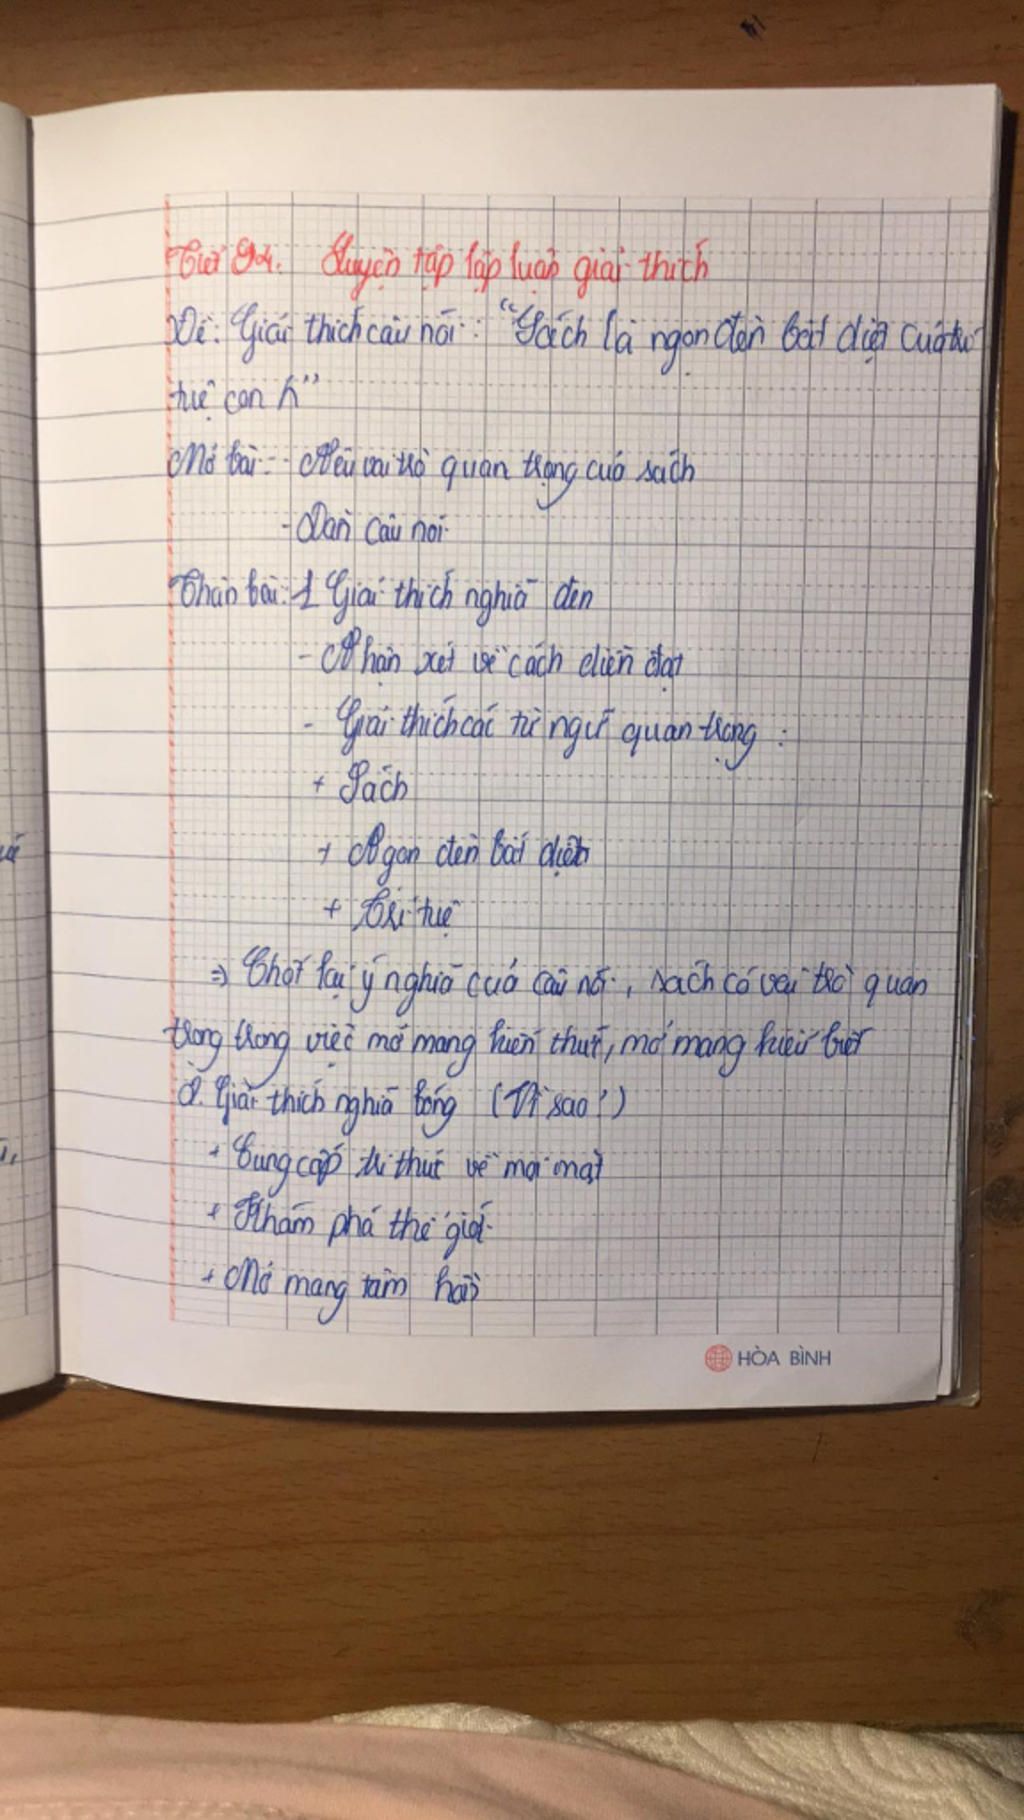 Tiết 94. Luyện tập lập luận giải thích
Đề: Giải thích câu nói: "Sách là ngọn đèn bất diệt của trí
tuệ con n"
Mở bài: - Nêu vai trò quan trọng của sách
- Dẫn câu nói
Thân bài: 1 Giải thích nghĩa đen
- Nhận xét về cách diễn đạt
- Giải thích các từ ngữ quan trọng :
+ Sách
+ Ngọn đèn bất diệt
+ Trí tuệ
=> Chốt lại ý nghĩa của câu nói, sách có vai trò quan
trọng trong việc mở mang kiến thức, mở mang hiểu biết
2. Giải thích nghĩa bóng (Vì sao?)
+ Cung cấp tri thức về mọi mặt
+ Khám phá thế giới
+ Mở mang tâm hồn
HÒA BÌNH